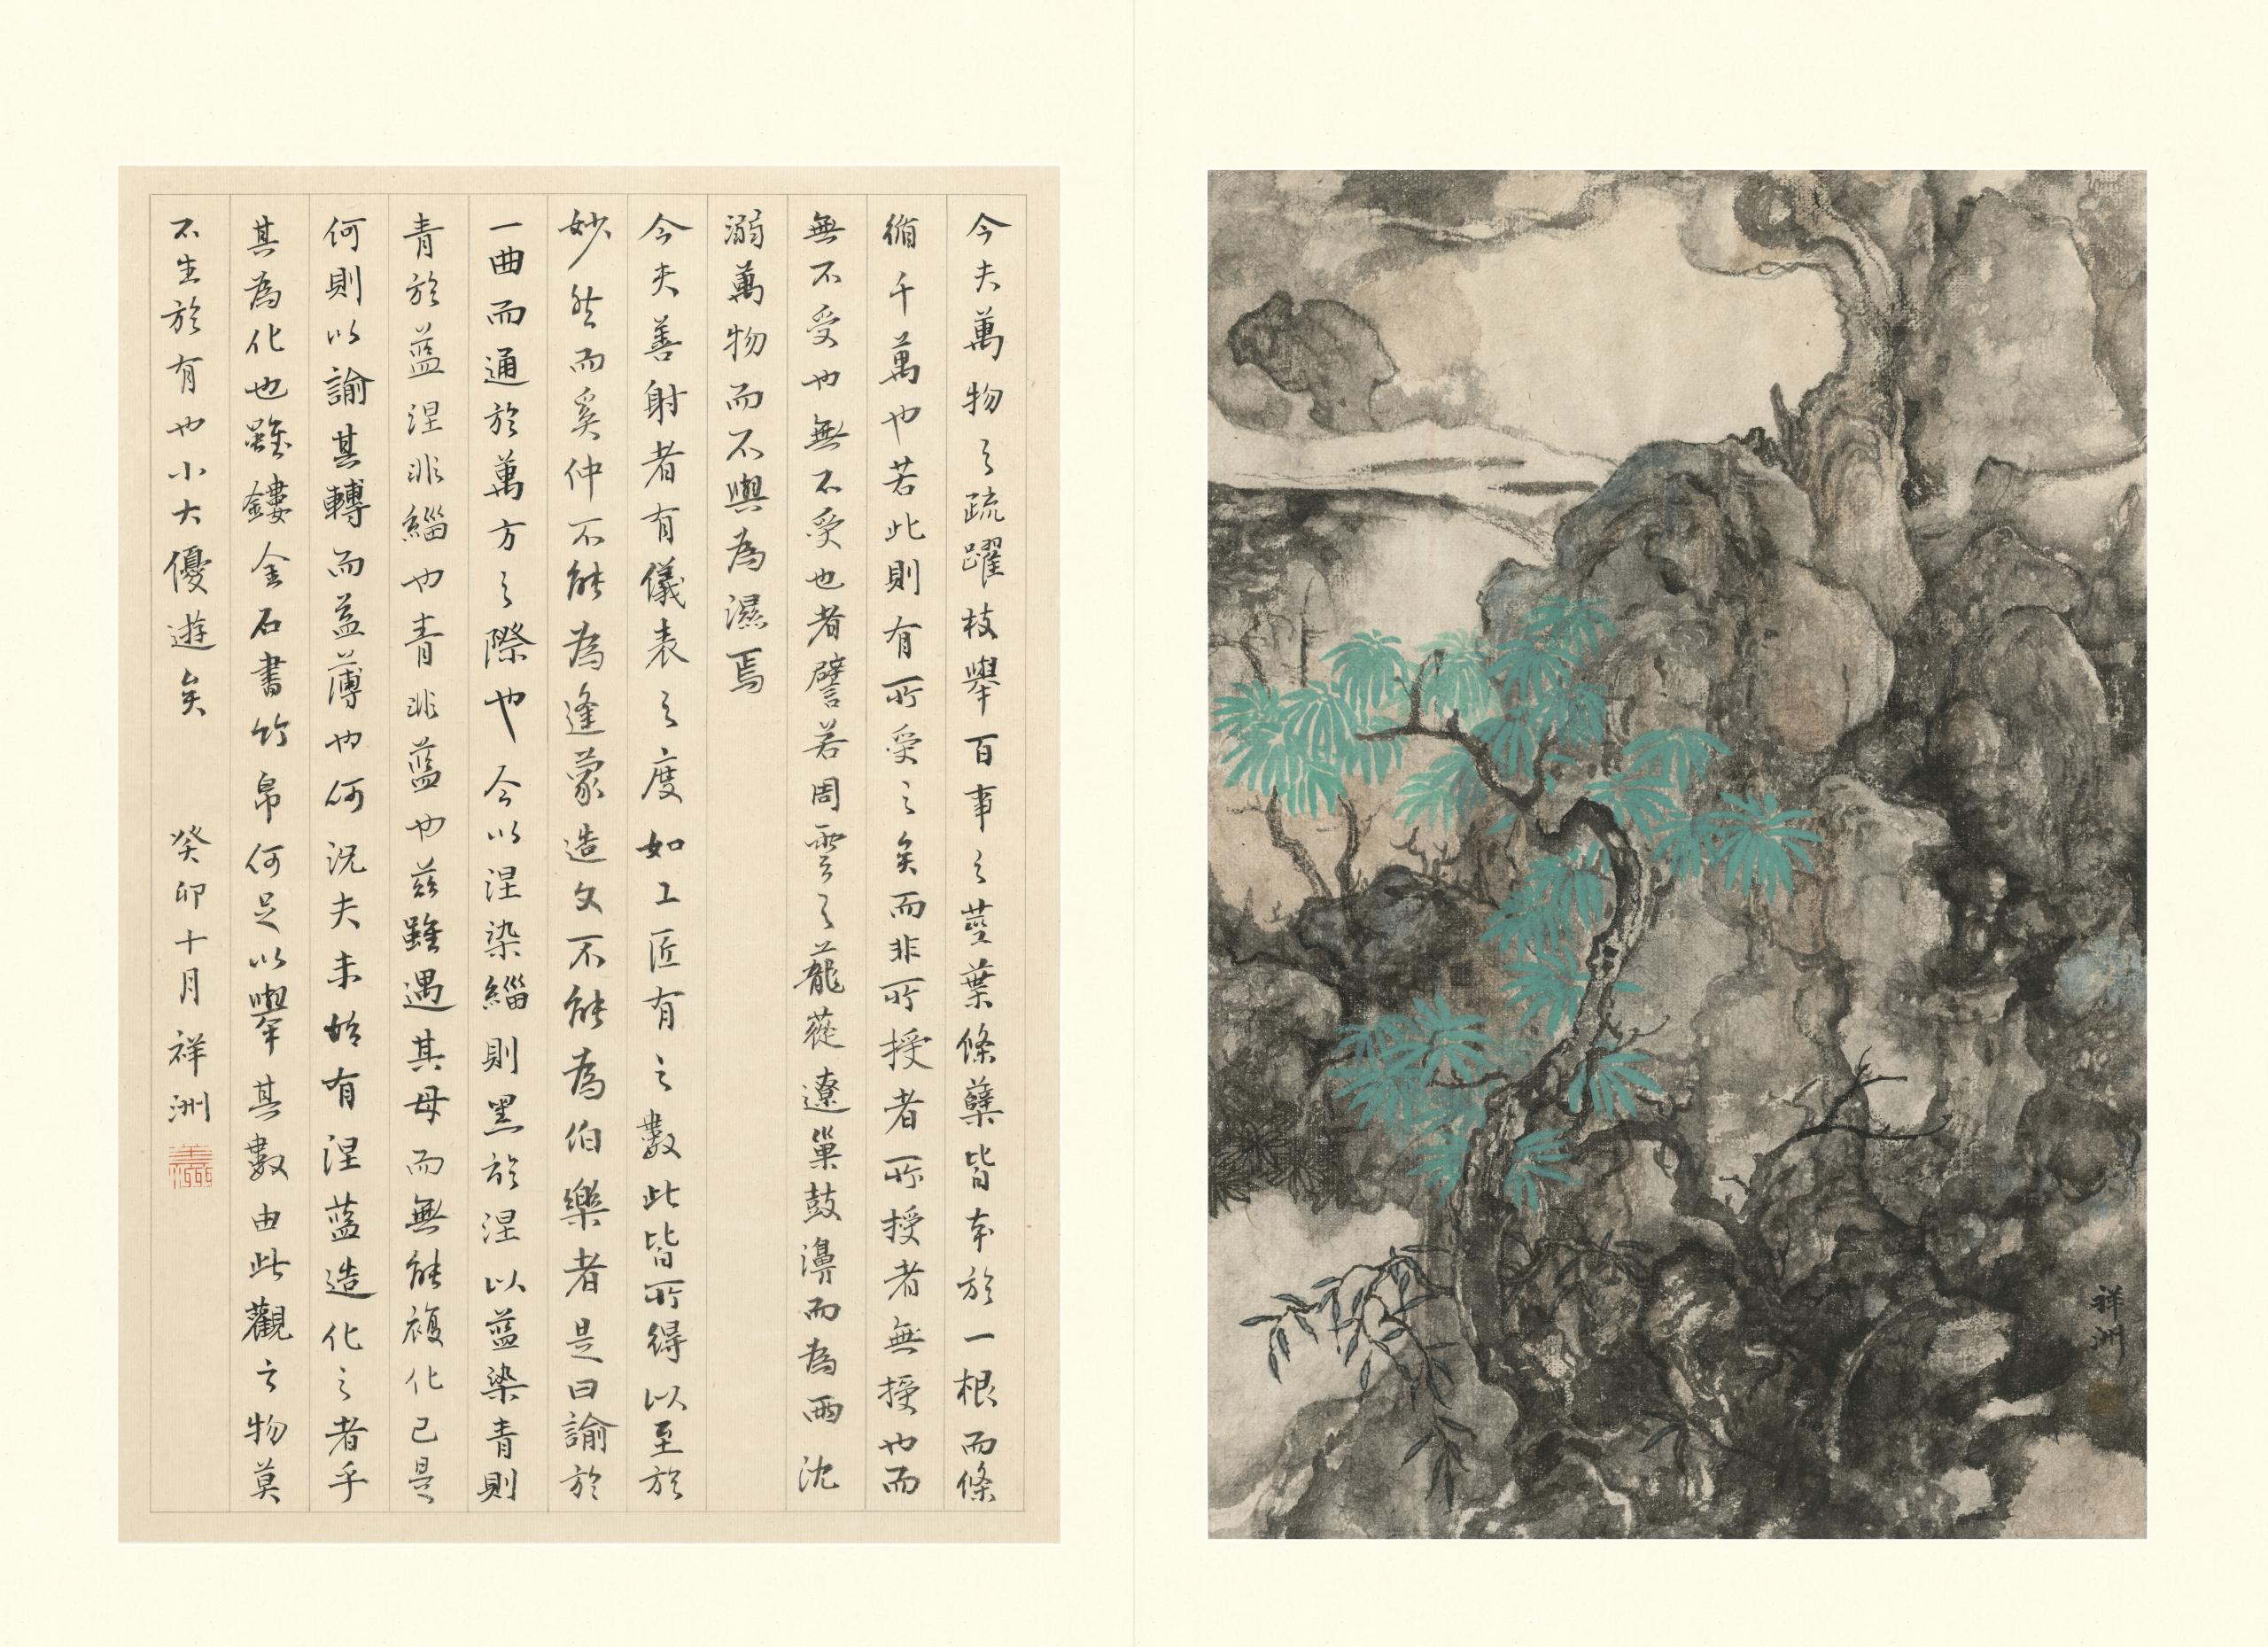 今夫萬物之疏躍枝舉百事之莖葉條蘖皆本於一根而條
循千萬也若此則有所受之矣而非所授者所授者無授也而
無不受也無不受也者譬若周雲之蘢蓯遼巢鼓濞而為雨沈
溺萬物而不與為濕焉
今夫善射者有儀表之度如工匠有之數此皆所得以至於
妙然而奚仲不能為逢蒙造父不能為伯樂者是曰諭於
一曲而通於萬方之際也今以涅染緇則黑於涅以藍染青則
青於藍涅非緇也青非藍也茲雖遇其母而無能複化已是
何則以諭其轉而益薄也何況夫未始有涅藍造化之者乎
其為化也雖鏤金石書竹帛何足以舉其數由此觀之物莫
不生於有也小大優遊矣 癸卯十月祥洲
祥洲